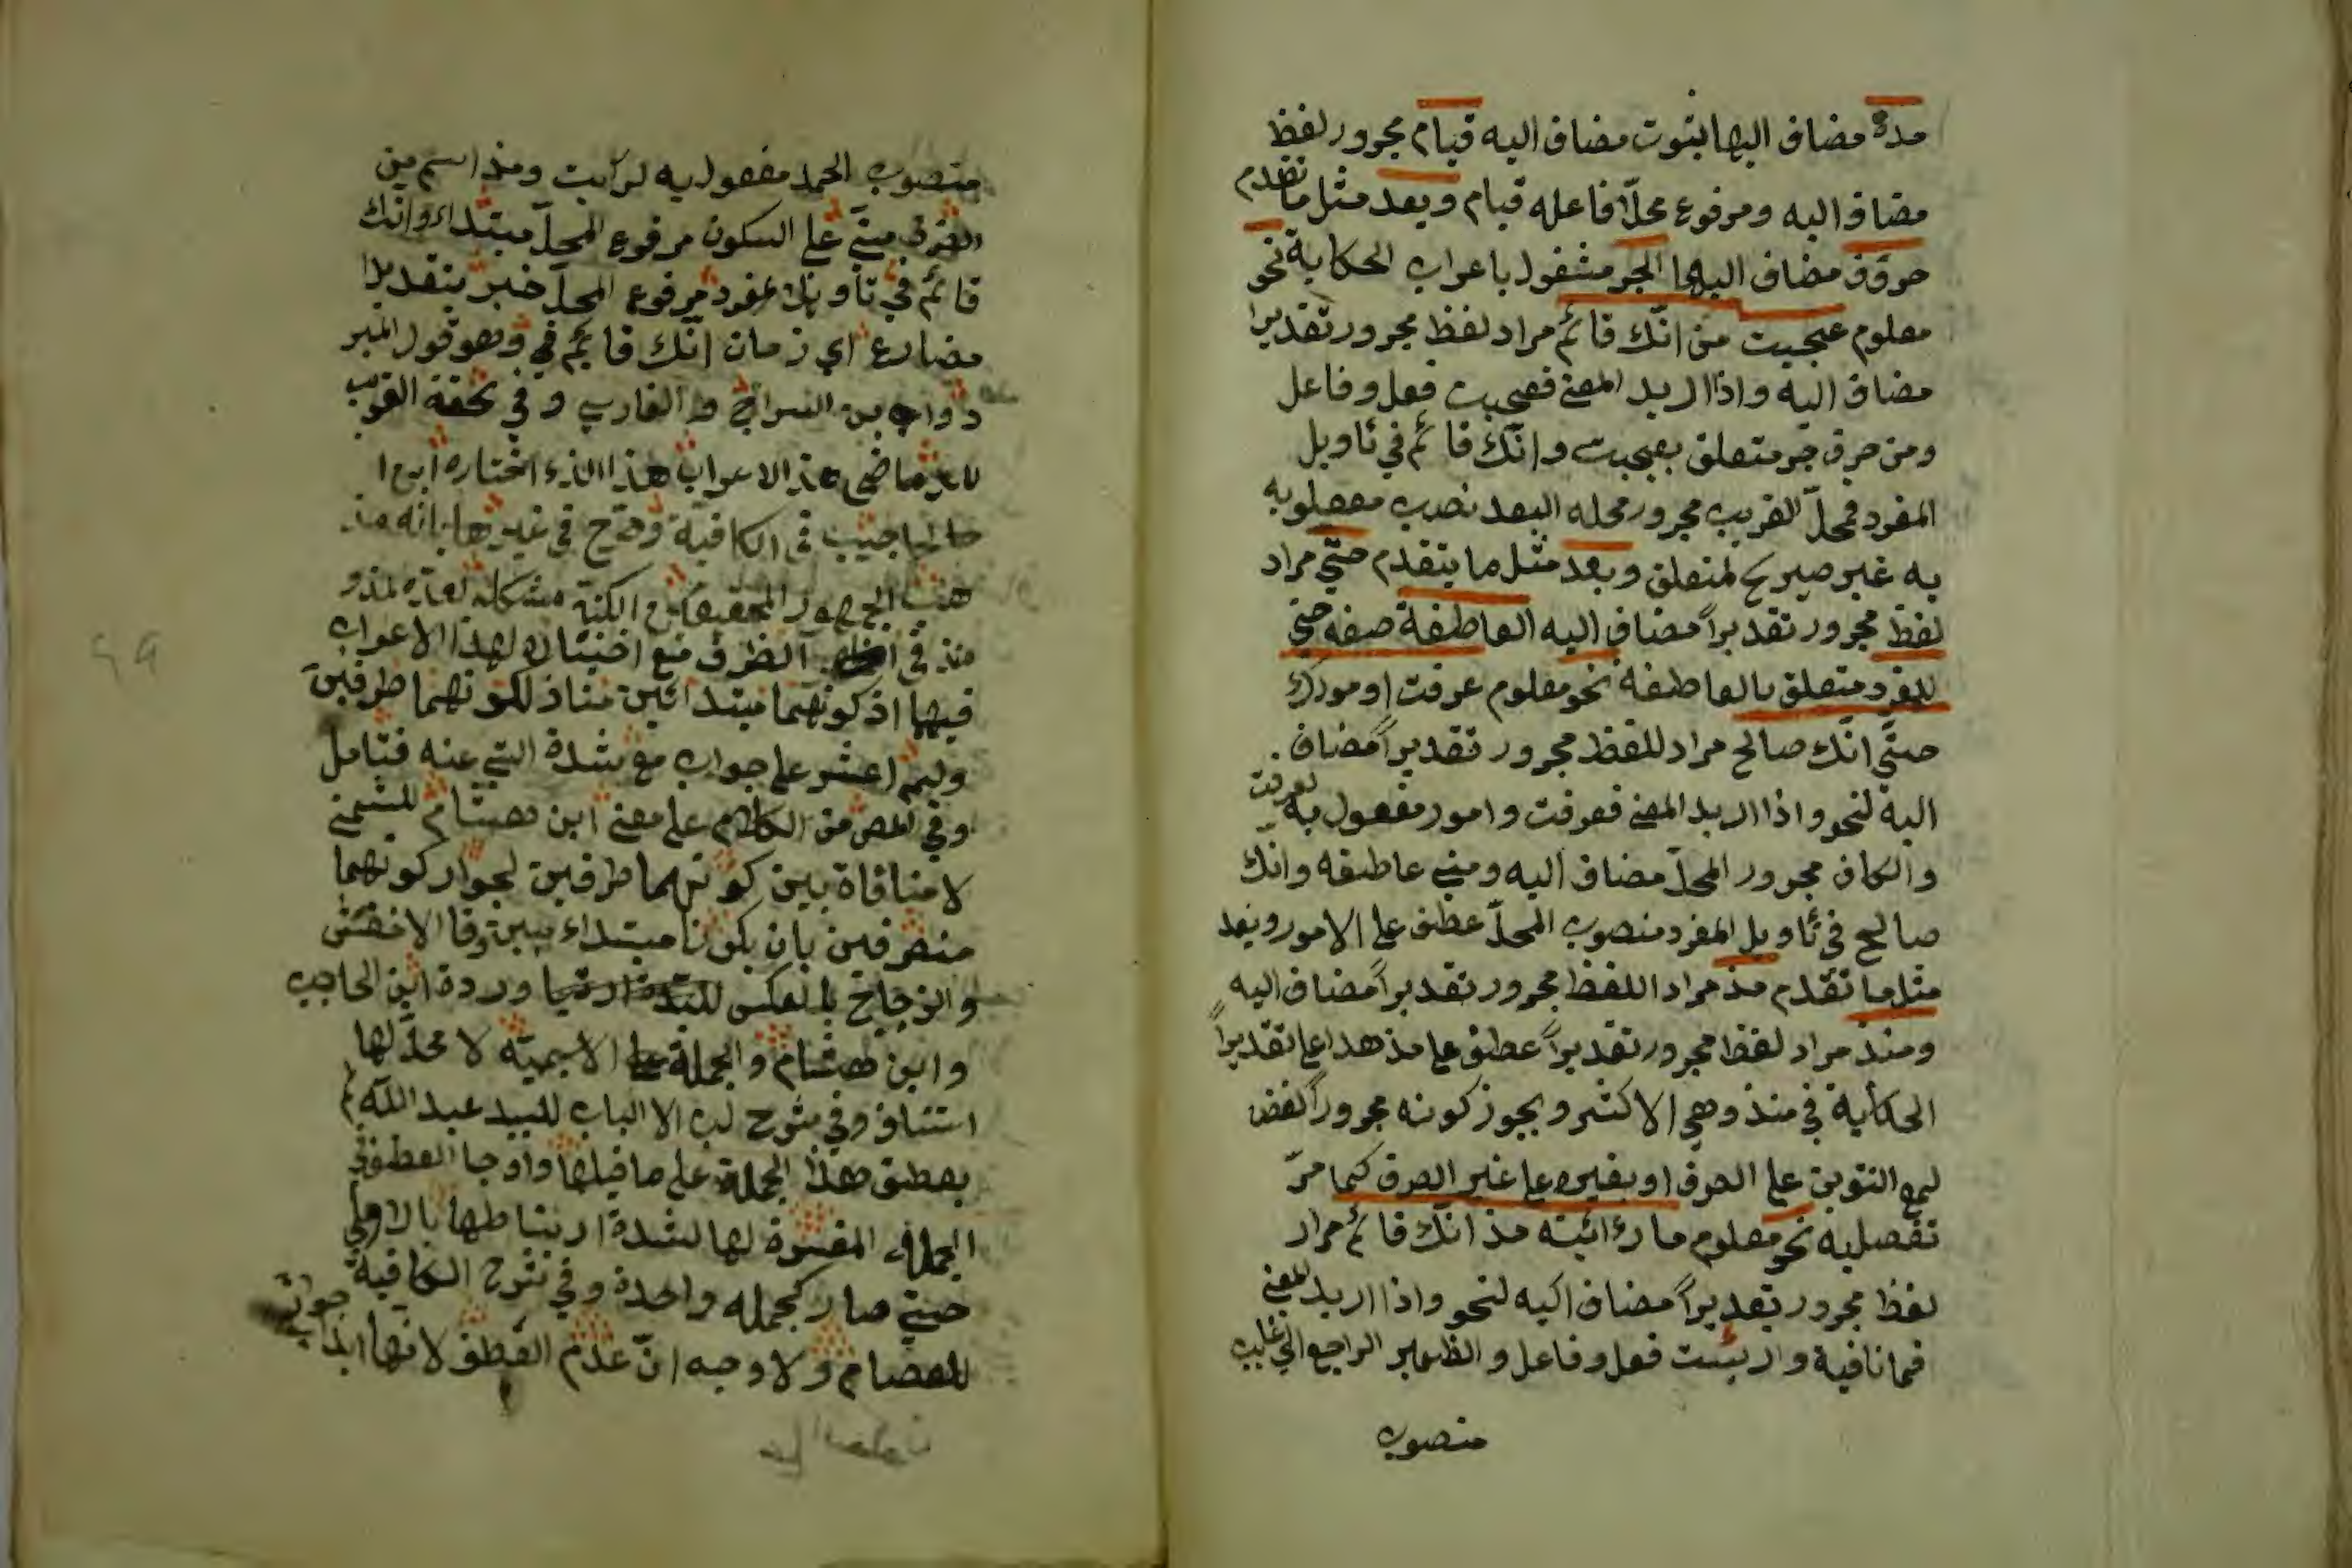 مدة مضاف اليها بثبوت مضاف اليه قيام مجرور لفظ
مضاف اليه ومرفوع محلّا فاعله قيام وبعد مثل ما تقدم
حروف مضاف اليها الجر مشغول باعراب الحكاية نحو
معلوم عجبت من انّك قائم مراد لفظ مجرور تقديرا
مضاف اليه واذا اريد المعنى فعجبت فعل وفاعل
ومن حرف جر متعلق بعجبت وانّك قائم في تاويل
المفرد فمحلّ القريب مجرور محله البعد نصب مفعلوبه
به غير صريح لمتعلق وبعد مثل ما يتقدم حتّى مراد
لفظ مجرور تقديراً مضاف اليه العاطفة صفه حتى
متعلق بالعاطفة نحو معلوم عرفت امورك
حتّى انّك صالح مراد للفظ مجرور تقديراً مضاف
اليه لنحو واذا اريد المعنى فعرفت وامور مفعول به لعرفت
والكاف مجرور المحلّ مضاف اليه ومنى عاطفه وانّك
صالح في تاويل المفرد منصوب المحلّ عطف على الامور وبعد
مثل ما تقدم مذ مراد اللفظ مجرور تقديراً مضاف اليه
ومنذ مراد لفظ مجرور تقديراً عطف على مذ هذا على تقدير
الحكاية في منذ وهي الاكثر ويجوز كونه مجروراً لفظا
مع التنوين على الصرف او بغيره على غير الصرف كما مرّ
تفصليه نحو معلوم ما رائيته مذ انّك قائم مراد
لفظ مجرور تقديراً مضاف اليه لنحو واذا اريد المعنى
فما نافية ورئيت فعل وفاعل والظمير الراجع الى غايب
منصوب
منصوب المحل مفعول به لرايت ومذ اسم من
مبنىّ على السكون مرفوع المحلّ مبتداء وانك
قائم في تاويل مفرد مرفوع المحلّ خبر بتقدير
مضارع اي زمان انّك قائم فيه وهو قول المبر
د وابن السراج والفارسي وفي تحفة الغريب
هذا الاعراب هذا الذى اختاره ابن ا
لحاجيب في الكافية وصرح في غيرها بانه مذ
هب الجمهور المحققين الكنه مشكل
منذ في الظرف مع اختياره لهذا الاعراب
فيها اذ كونهما مبتدائين مناف لكونهما طرفين
وليم اعشر على جواب مع شدة التي عنه فتامل
وفي من الكلام على مغنى ابن هشام للشمنى
لا منافاة بين كونهما طرفين لجواز كونهما
منصرفين بان يكونا مبتداء وقا الاخفش
والزجاج بالعكس وردة ابن الحاجب
وابن هشام والجملة الاسميّة لا محلّ لها
استناف وفي شرح لب الالباب للسيد عبد اللّه
بعطف هذا الجملة على ما قبلها
الجملة المفسّرة لها لشدة ارتباطها بالاولى
حتى صار كجمله واحدة وفي شرح الكافية
للعصام ولا وجه انّ عدم العطف لانّها ابدا جواب